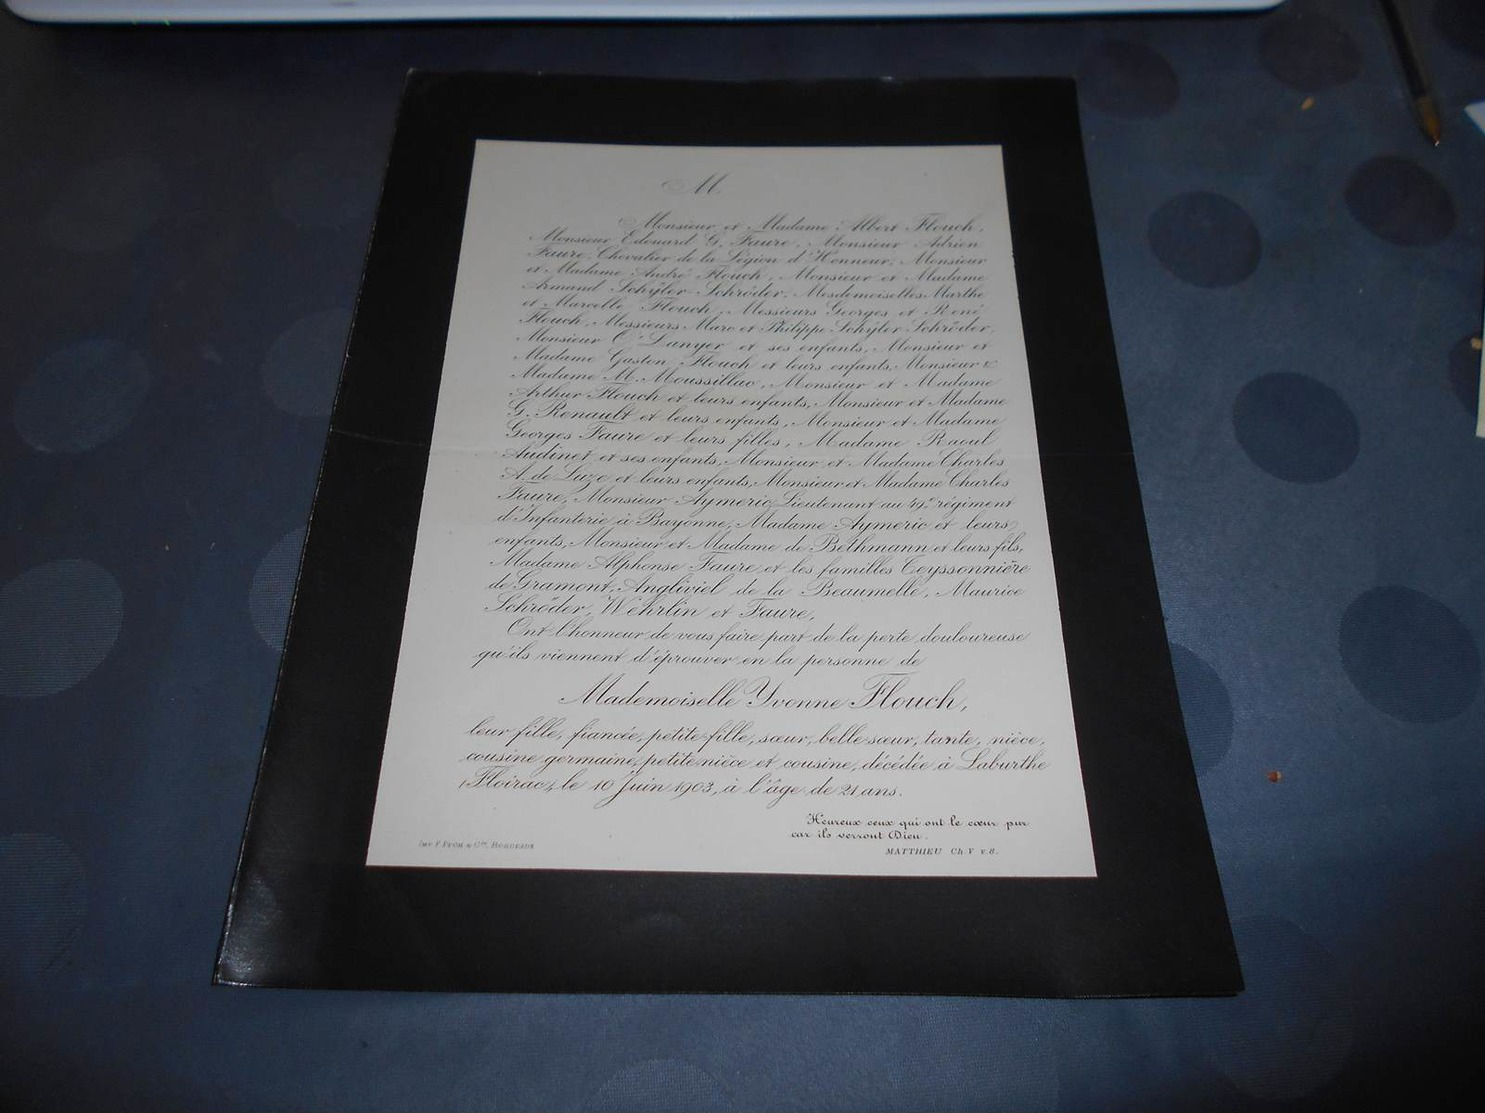 M
Monsieur et Madame Albert Flouch,
Monsieur Edouard G. Faure, Monsieur Adrien
Faure, Chevalier de la Légion d'Honneur, Monsieur
et Madame André Flouch, Monsieur et Madame
Armand Schÿler-Schröder, Mesdemoiselles Marthe
et Marcelle Flouch, Messieurs Georges et René
Flouch, Messieurs Marc et Philippe Schÿler-Schröder,
Monsieur O'Lanyer et ses enfants, Monsieur et
Madame Gaston Flouch et leurs enfants, Monsieur &
Madame M. Moussillac, Monsieur et Madame
Arthur Flouch et leurs enfants, Monsieur et Madame
G. Renault et leurs enfants, Monsieur et Madame
Georges Faure et leurs filles, Madame Raoul
Audinet et ses enfants, Monsieur et Madame Charles
A. de Luze et leurs enfants, Monsieur et Madame Charles
Faure, Monsieur Aymeric, Lieutenant au 49e régiment
d'Infanterie à Bayonne, Madame Aymeric et leurs
enfants, Monsieur et Madame de Bethmann et leurs fils,
Madame Alphonse Faure et les familles Teyssonnière
de Gramont, Angliviel de la Beaumelle, Maurice
Schröder, Wehrlin et Faure,
Ont l'honneur de vous faire part de la perte douloureuse
qu'ils viennent d'éprouver en la personne de
Mademoiselle Yvonne Flouch,
leur fille, fiancée, petite-fille, sœur, belle-sœur, tante, nièce,
cousine germaine, petite nièce et cousine, décédée à Laburthe
(Floirac), le 10 Juin 1903, à l'âge de 21 ans.
Heureux ceux qui ont le cœur pur
car ils verront Dieu.
MATTHIEU Ch. V v. 8.
Imp. F. Pech & Cie, Bordeaux